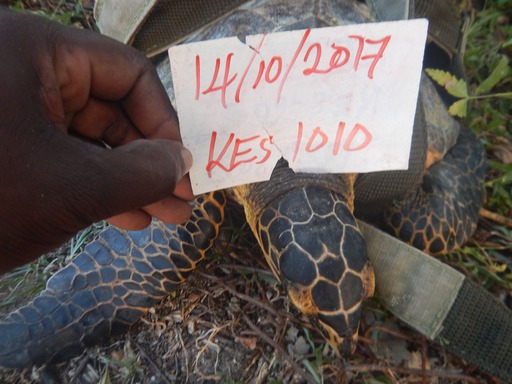 14/10/2017
KES 1010